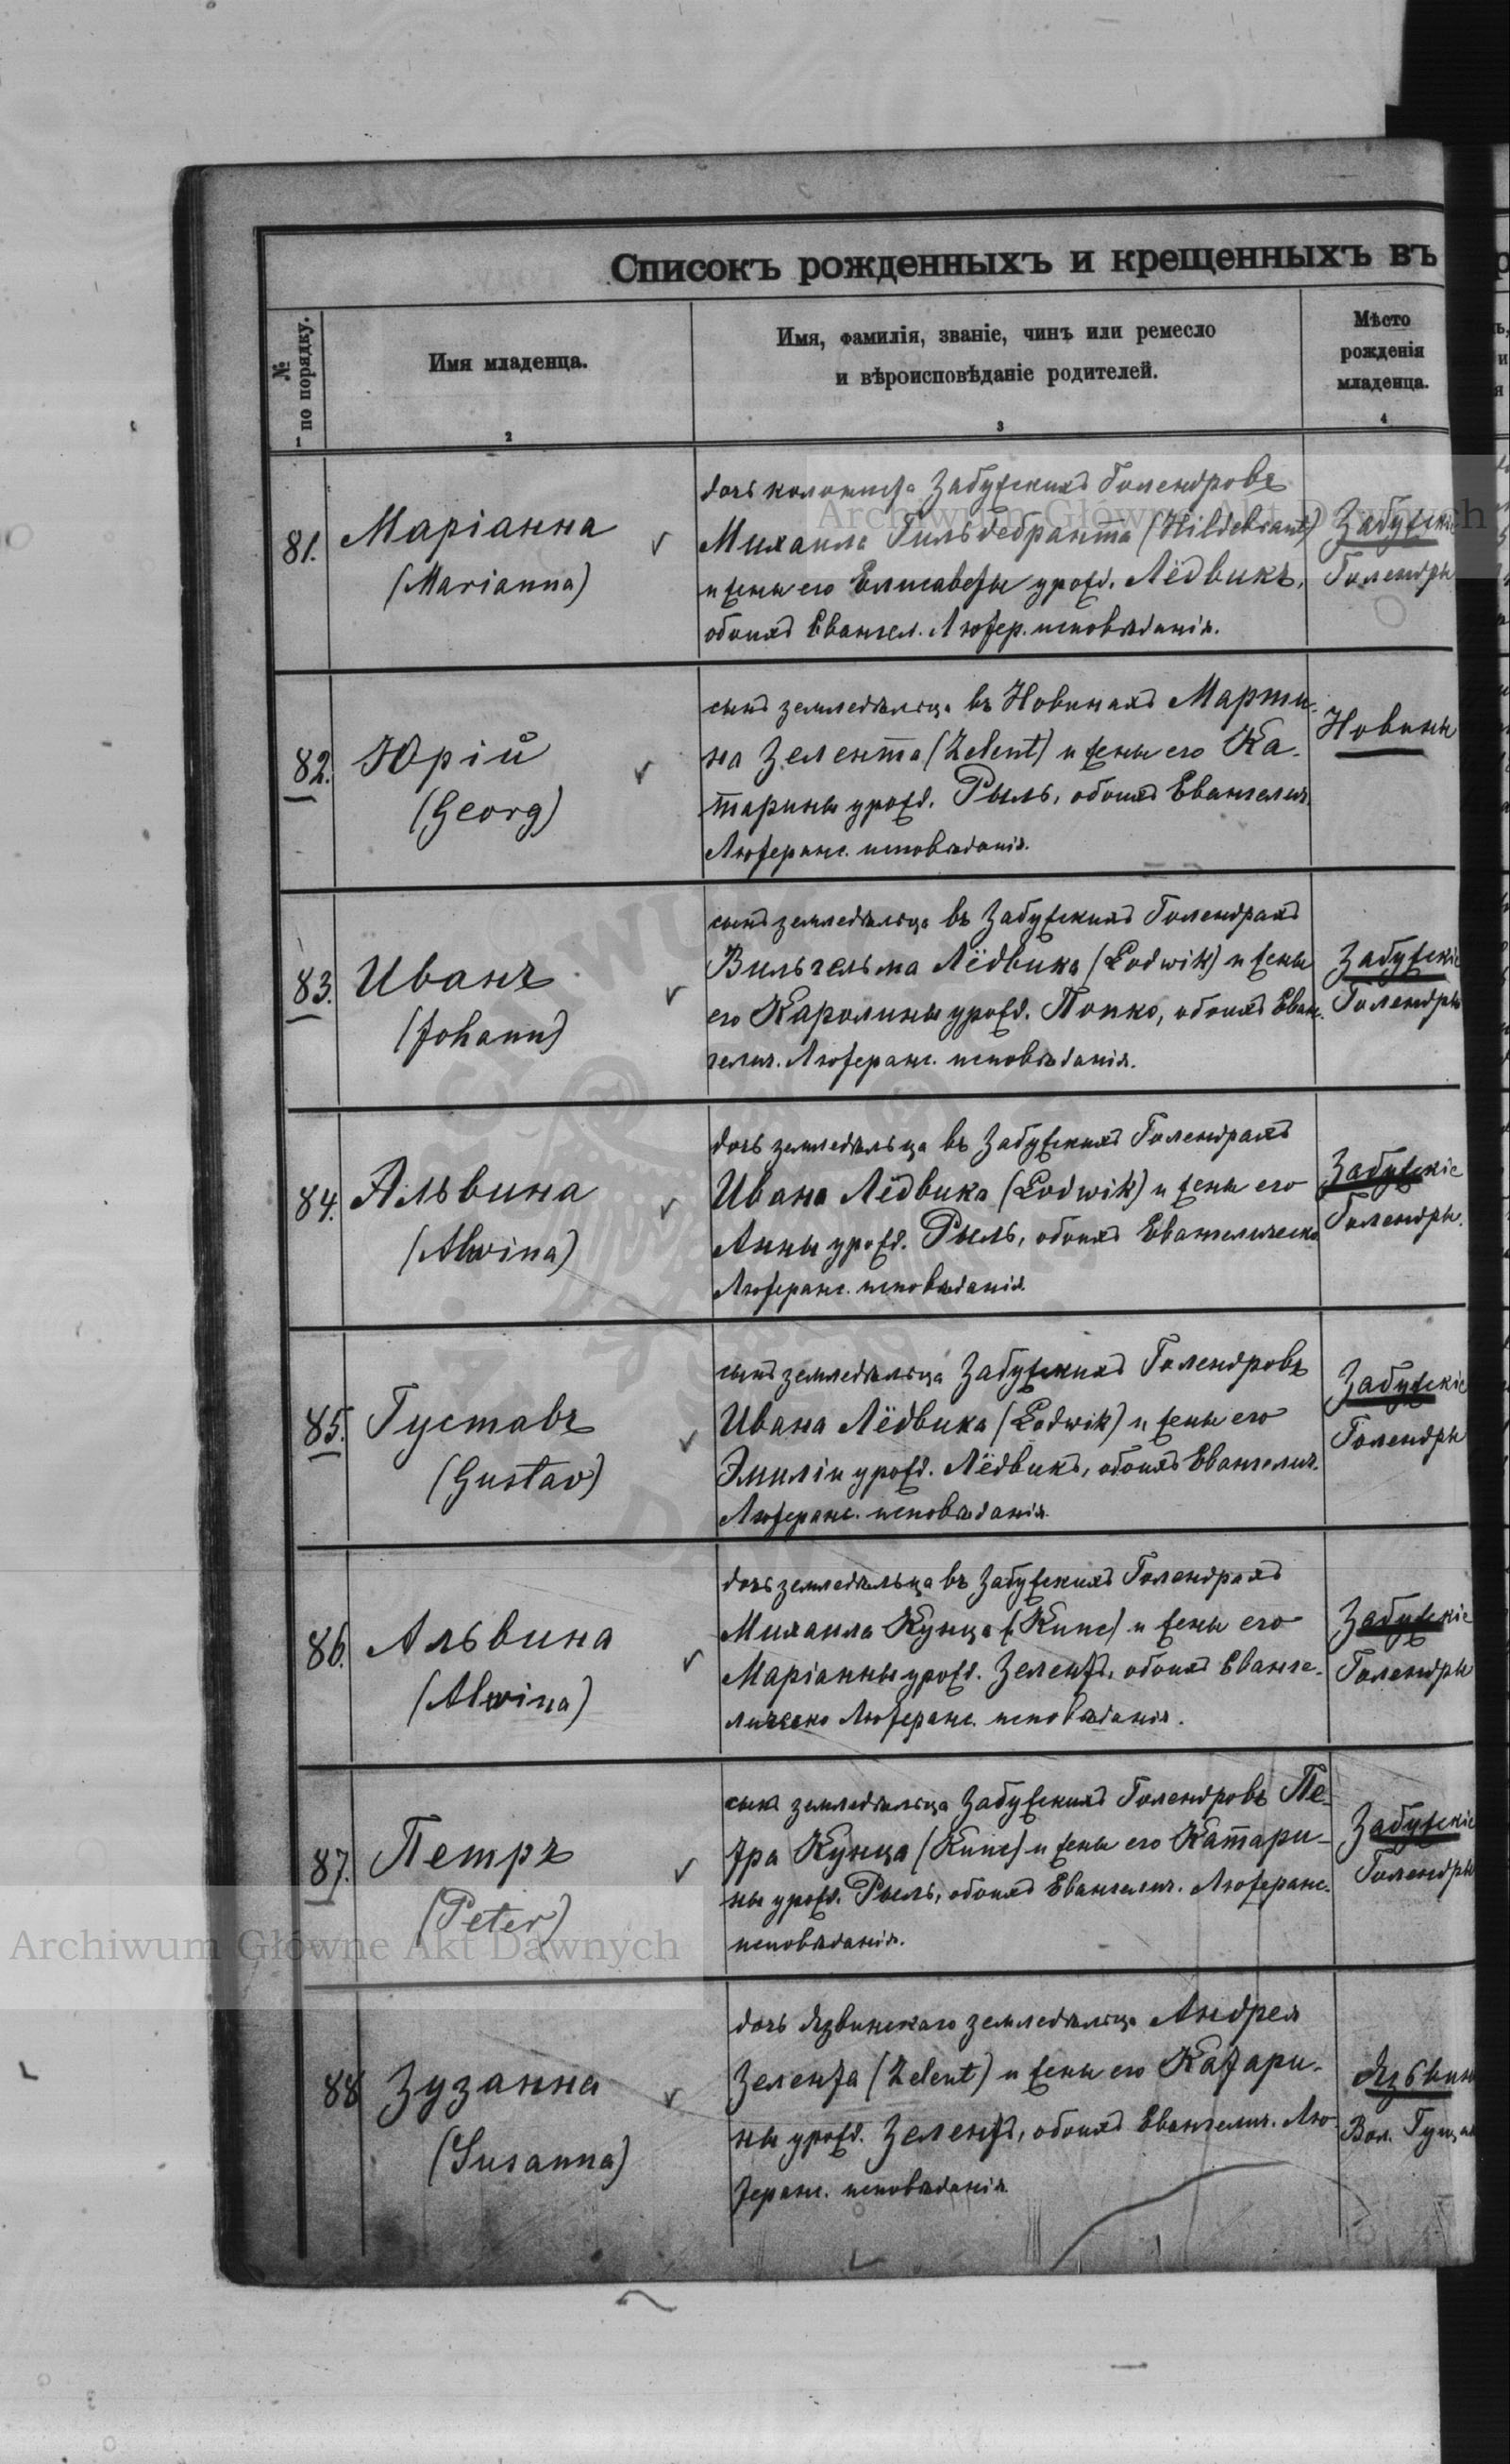 Списокъ рожденныхъ и крещенныхъ въ
№ по порядку.
Имя младенца.
Имя, фамилія, званіе, чинъ или ремесло
и вѣроисповѣданіе родителей.
Мѣсто
рожденія
младенца.
1
2
3
4
81.
Маріанна
(Marianna)
дочь колониста Забужскихъ Голендровъ
Михаила Гильдебранта (Hildebrant)
и жены его Елисаветы урожд. Лёдвикъ,
обоихъ Евангел. Лютер. исповѣданія.
Забужскіе
Голендры
82.
Юрій
(Georg)
сынъ земледѣльца въ Новинахъ Марти-
на Зелента (Zelent) и жены его Ка-
тарины урожд. Рыль, обоихъ Евангелич.
Лютеранс. исповѣданія.
Новины
83.
Иванъ
(Johann)
сынъ земледѣльца въ Забужскихъ Голендрахъ
Вильгельма Лёдвика (Lodwik) и жены
его Каролины урожд. Попко, обоихъ Еван-
гелич. Лютеранс. исповѣданія.
Забужскіе
Голендры
84.
Альвина
(Alwina)
дочь земледѣльца въ Забужскихъ Голендрахъ
Ивана Лёдвика (Lodwik) и жены его
Анны урожд. Рыль, обоихъ Евангелическо
Лютеранс. исповѣданія.
Забужскіе
Голендры.
85.
Густавъ
(Gustav)
сынъ земледѣльца Забужскихъ Голендровъ
Ивана Лёдвика (Lodwik) и жены его
Эмиліи урожд. Лёдвикъ, обоихъ Евангелич.
Лютеранс. исповѣданія.
Забужскіе
Голендры
86.
Альвина
(Alwina)
дочь земледѣльца въ Забужскихъ Голендрахъ
Михаила Кунца (Kunc) и жены его
Маріанны урожд. Зелентъ, обоихъ Еванге-
лическо Лютеранс. исповѣданія.
Забужскіе
Голендры
87.
Петръ
(Peter)
сынъ земледѣльца Забужскихъ Голендровъ Пе-
тра Кунца (Kunc) и жены его Катари-
ны урожд. Рыль, обоихъ Евангелич. Лютеранс.
исповѣданія.
Забужскіе
Голендры
88
Зузанна
(Susanna)
дочь Язвинскаго земледѣльца Андрея
Зелента (Zelent) и жены его Катари-
ны урожд. Зелентъ, обоихъ Евангелич. Лю-
теранс. исповѣданія.
Вол.
Archiwum Główne Akt Dawnych
Archiwum Główne Akt Dawnych